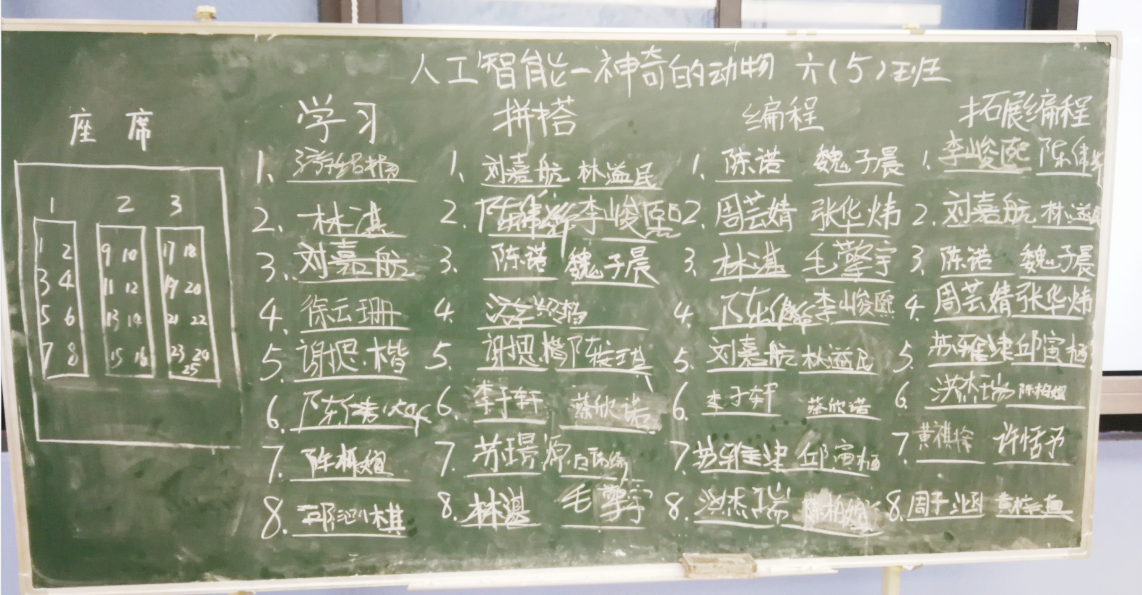 人工智能—神奇的动物 六(5)班
座席
学习
拼搭
编程
拓展编程
1 2 3
1 2 9 10 17 18
3 4 11 12 19 20
5 6 13 14 21 22
7 8 15 16 23 24
25
1.
2. 林湛
3. 刘嘉航
4. 徐云珊
5. 谢思楷
6.
7. 陈柏妲
8.
1. 刘嘉航 林益民
2. 陈伟华 李峻熙
3. 陈诺 魏子晨
4.
5. 谢思楷
6. 李子轩 蔡欣诺
7. 苏璟源
8. 林湛 毛擎宇
1. 陈诺 魏子晨
2. 周芸婧 张华炜
3. 林湛 毛擎宇
4. 李峻熙
5. 刘嘉航 林益民
6. 李子轩 蔡欣诺
7. 邱演栖
8. 洪杰瑞
1. 李峻熙 陈伟华
2. 刘嘉航 林益民
3. 陈诺 魏子晨
4. 周芸婧 张华炜
5.
6. 洪杰瑞 陈柏妲
7. 黄祺徐 许恬予
8. 周子涵